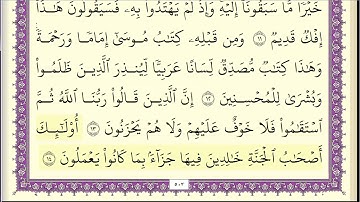 خَيْرًا مَّا سَبَقُونَآ إِلَيْهِ وَإِذْ لَمْ يَهْتَدُوا۟ بِهِۦ فَسَيَقُولُونَ هَٰذَآ
إِفْكٌ قَدِيمٌ ١١ وَمِن قَبْلِهِۦ كِتَٰبُ مُوسَىٰٓ إِمَامًا وَرَحْمَةً
وَهَٰذَا كِتَٰبٌ مُّصَدِّقٌ لِّسَانًا عَرَبِيًّا لِّيُنذِرَ ٱلَّذِينَ ظَلَمُوا۟
وَبُشْرَىٰ لِلْمُحْسِنِينَ ١٢ إِنَّ ٱلَّذِينَ قَالُوا۟ رَبُّنَا ٱللَّهُ ثُمَّ
ٱسْتَقَٰمُوا۟ فَلَا خَوْفٌ عَلَيْهِمْ وَلَا هُمْ يَحْزَنُونَ ١٣ أُو۟لَٰٓئِكَ
أَصْحَٰبُ ٱلْجَنَّةِ خَٰلِدِينَ فِيهَا جَزَآءًۢ بِمَا كَانُوا۟ يَعْمَلُونَ ١٤
٥٠٣